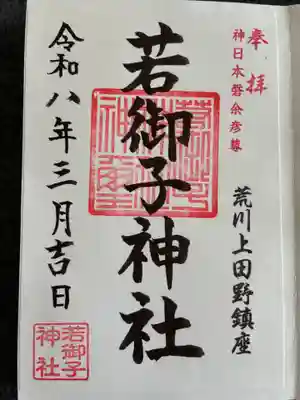 奉拝
神日本磐余彦尊
荒川上田野鎮座
若御子神社
令和八年三月吉日
若御子
神社